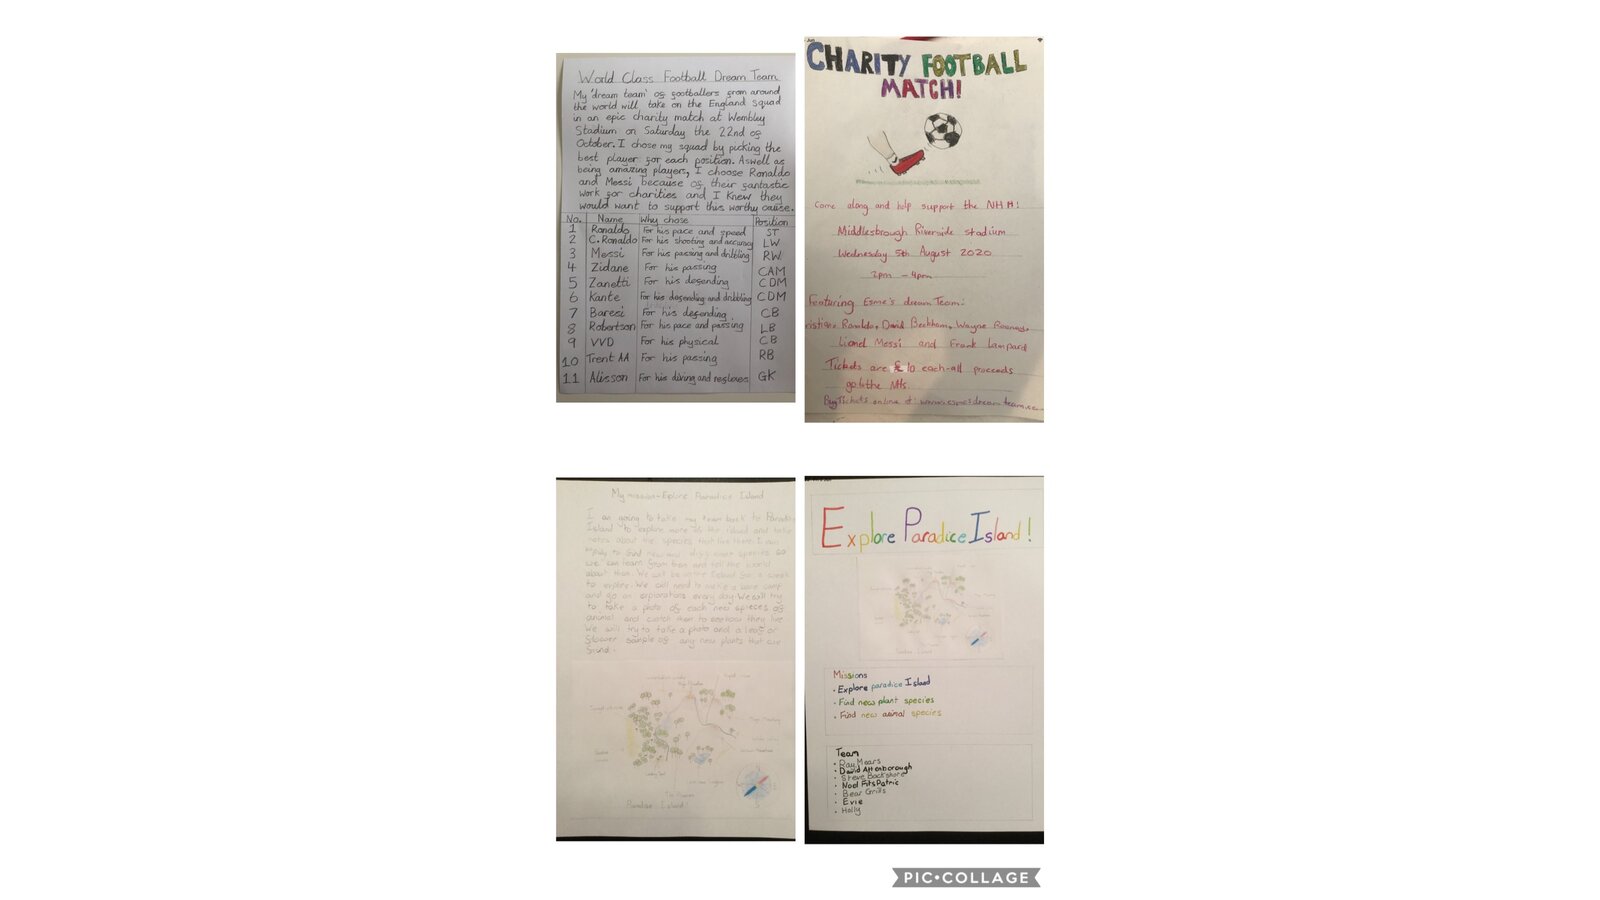 World Class Football Dream Team
My 'dream team' of footballers from around
the world will take on the England squad
in an epic charity match at Wembley
Stadium on Saturday the 22nd of
October. I chose my squad by picking the
best player for each position. Aswell as
being amazing players, I choose Ronaldo
and Messi because of their fantastic
work for charities and I knew they
would want to support this worthy cause.
No. Name Why chose Position
1 Ronaldo For his pace and speed ST
2 C.Ronaldo For his shooting and accuracy LW
3 Messi For his passing and dribbling RW
4 Zidane For his passing CAM
5 Zanetti For his defending CDM
6 Kante For his defending and dribbling CDM
7 Baresi For his defending CB
8 Robertson For his pace and passing LB
9 VVD For his physical CB
10 Trent AA For his passing RB
11 Alisson For his diving and reflexes GK
CHARITY FOOTBALL
MATCH!
Come along and help support the
Middlesbrough Riverside stadium
Wednesday 5th August 2020
2pm - 4pm
Featuring Esme's dream Team:
Ronaldo, David Beckham, Wayne Rooney,
Lionel Messi and Frank Lampard
Tickets are £10 each-all proceeds
go to the NHS.
Buy Tickets online at: www.esmesdreamteam.
My mission - Explore Paradice Island
I am going to take my team back to
Island to explore more of the island and take
notes about the species that live there. I am
to find new and different species so
we can learn from them and tell the world
about them. We will be on the Island for a week
to explore. We will need to make a base camp
and go on explorations every day. We will try
to take a photo of each new spieces of
animal and catch them to see how they live
We will try to take a photo and a leaf or
flower sample of any new plants that are
found.
Paradise Island
Explore Paradice Island!
Missions
• Explore paradice Island
• Find new plant species
• Find new animal species
Team
• Ray Mears
• David Attenborough
• Steve Backshore
• Noel FitsPatric
• Bear Grills
• Evie
• Holly
PIC•COLLAGE